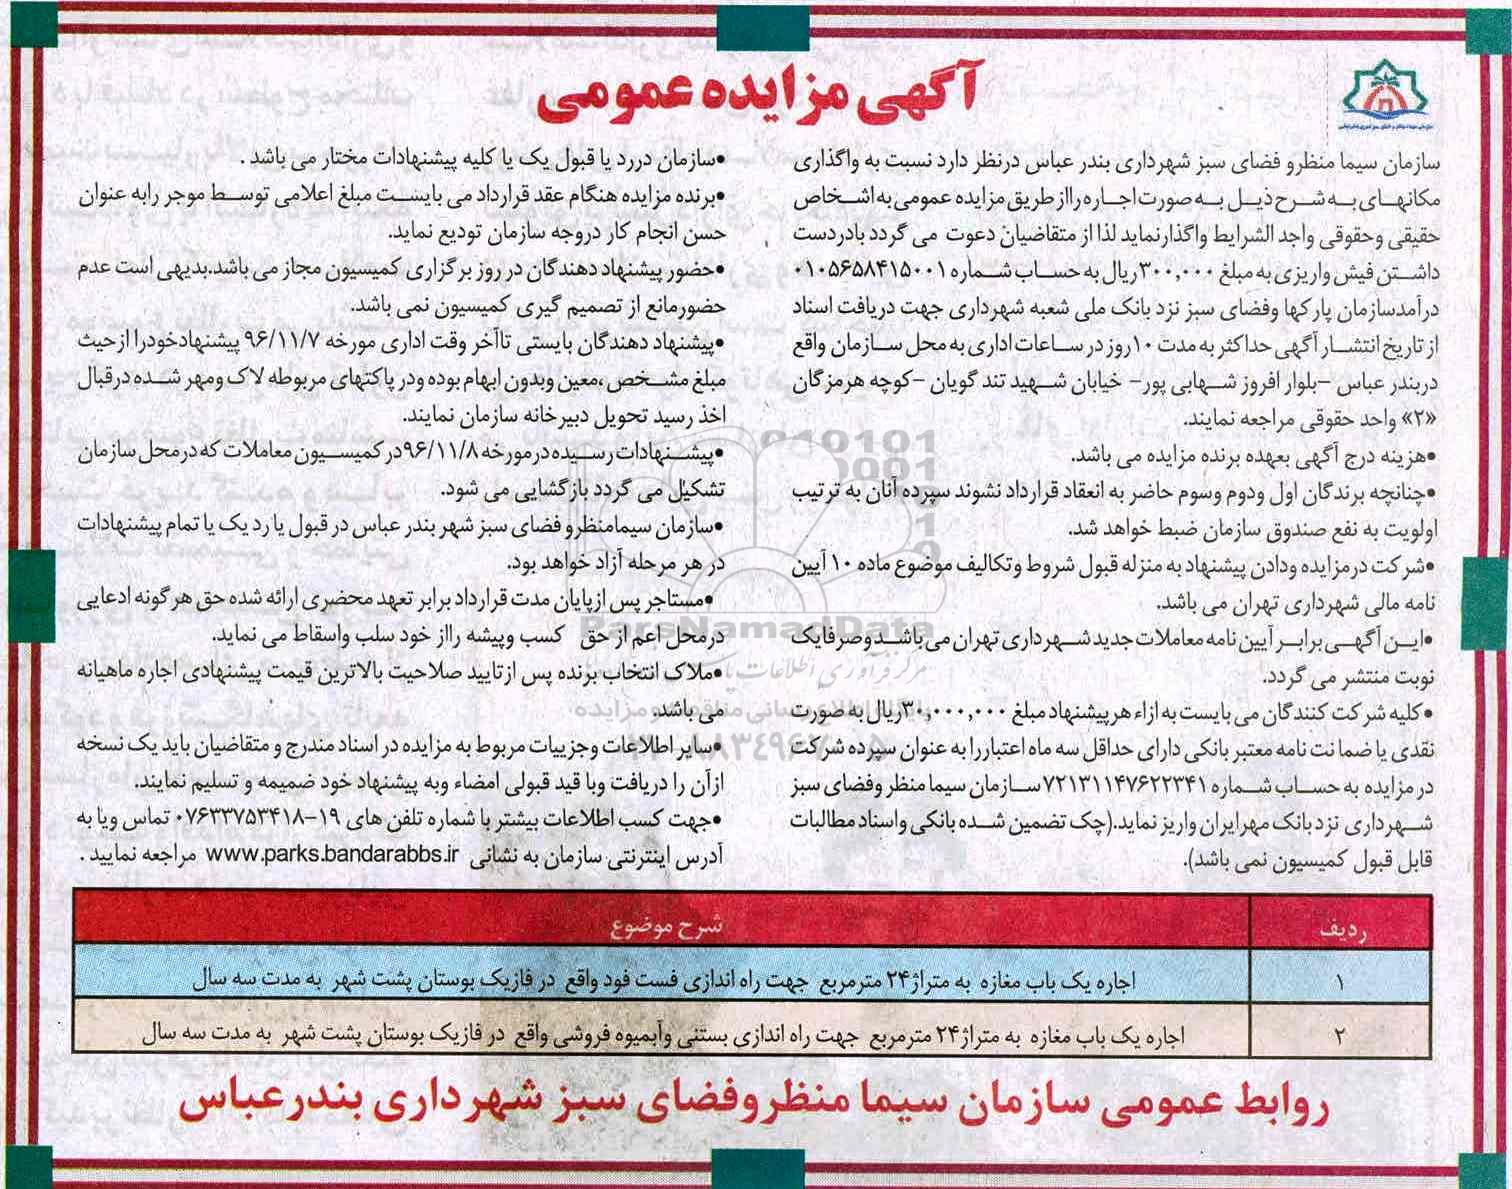 آگهی مزایده عمومی
سازمان سیما منظرو فضای سبز شهرداری بندر عباس درنظر دارد نسبت به واگذاری
مکانهای به شرح ذیل به صورت اجاره رااز طریق مزایده عمومی به اشخاص
حقیقی وحقوقی واجد الشرایط واگذارنماید لذا از متقاضیان دعوت می گردد بادردست
داشتن فیش واریزی به مبلغ ۳۰۰,۰۰۰ریال به حساب شماره ۰۱۰۵۶۵۸۴۱۵۰۰۱
درآمدسازمان پارکها وفضای سبز نزد بانک ملی شعبه شهرداری جهت دریافت اسناد
از تاریخ انتشار آگهی حداکثر به مدت ۱۰روز در ساعات اداری به محل سازمان واقع
دربندر عباس –بلوار افروز شهابی پور– خیابان شهید تند گویان –کوچه هرمزگان
«۲» واحد حقوقی مراجعه نمایند.
•هزینه درج آگهی بعهده برنده مزایده می باشد.
•چنانچه برندگان اول ودوم وسوم حاضر به انعقاد قرارداد نشوند سپرده آنان به ترتیب
اولویت به نفع صندوق سازمان ضبط خواهد شد.
•شرکت درمزایده ودادن پیشنهاد به منزله قبول شروط وتکالیف موضوع ماده ۱۰ آیین
نامه مالی شهرداری تهران می باشد.
•این آگهی برابر آیین نامه معاملات جدید شهرداری تهران می باشد وصرفایک
نوبت منتشر می گردد.
•کلیه شرکت کنندگان می بایست به ازاء هرپیشنهاد مبلغ ۳۰,۰۰۰,۰۰۰ریال به صورت
نقدی یا ضما نت نامه معتبر بانکی دارای حداقل سه ماه اعتباررا به عنوان سپرده شرکت
در مزایده به حساب شماره ۷۲۱۳۱۱۴۷۶۲۲۳۴۱ سازمان سیما منظر وفضای سبز
شهرداری نزد بانک مهرایران واریز نماید.(چک تضمین شده بانکی واسناد مطالبات
قابل قبول کمیسیون نمی باشد).
•سازمان دررد یا قبول یک یا کلیه پیشنهادات مختار می باشد .
•برنده مزایده هنگام عقد قرارداد می بایست مبلغ اعلامی توسط موجر رابه عنوان
حسن انجام کار دروجه سازمان تودیع نماید.
•حضور پیشنهاد دهندگان در روز برگزاری کمیسیون مجاز می باشد.بدیهی است عدم
حضورمانع از تصمیم گیری کمیسیون نمی باشد.
•پیشنهاد دهندگان بایستی تاآخر وقت اداری مورخه ۹۶/۱۱/۷ پیشنهادخودرا ازحیث
مبلغ مشخص ،معین وبدون ابهام بوده ودر پاکتهای مربوطه لاک ومهر شده درقبال
اخذ رسید تحویل دبیرخانه سازمان نمایند.
•پیشنهادات رسیده درمورخه ۹۶/۱۱/۸در کمیسیون معاملات که درمحل سازمان
تشکیل می گردد بازگشایی می شود.
•سازمان سیمامنظرو فضای سبز شهر بندر عباس در قبول یا رد یک یا تمام پیشنهادات
در هر مرحله آزاد خواهد بود.
•مستاجر پس ازپایان مدت قرارداد برابر تعهد محضری ارائه شده حق هر گونه ادعایی
درمحل اعم از حق کسب وپیشه رااز خود سلب واسقاط می نماید.
•ملاک انتخاب برنده پس ازتایید صلاحیت بالاترین قیمت پیشنهادی اجاره ماهیانه
می باشد.
•سایر اطلاعات وجزییات مربوط به مزایده در اسناد مندرج و متقاضیان باید یک نسخه
ازآن را دریافت وبا قید قبولی امضاء وبه پیشنهاد خود ضمیمه و تسلیم نمایند.
•جهت کسب اطلاعات بیشتر با شماره تلفن های ۱۹–۰۷۶۳۳۷۵۳۴۱۸ تماس ویا به
آدرس اینترنتی سازمان به نشانی www.parks.bandarabbs.ir مراجعه نمایید .
ردیف شرح موضوع
۱ اجاره یک باب مغازه به متراژ۲۴ مترمربع جهت راه اندازی فست فود واقع در فازیک بوستان پشت شهر به مدت سه سال
۲ اجاره یک باب مغازه به متراژ۲۴ مترمربع جهت راه اندازی بستنی وآبمیوه فروشی واقع در فازیک بوستان پشت شهر به مدت سه سال
روابط عمومی سازمان سیما منظروفضای سبز شهرداری بندرعباس
ParsNamadData